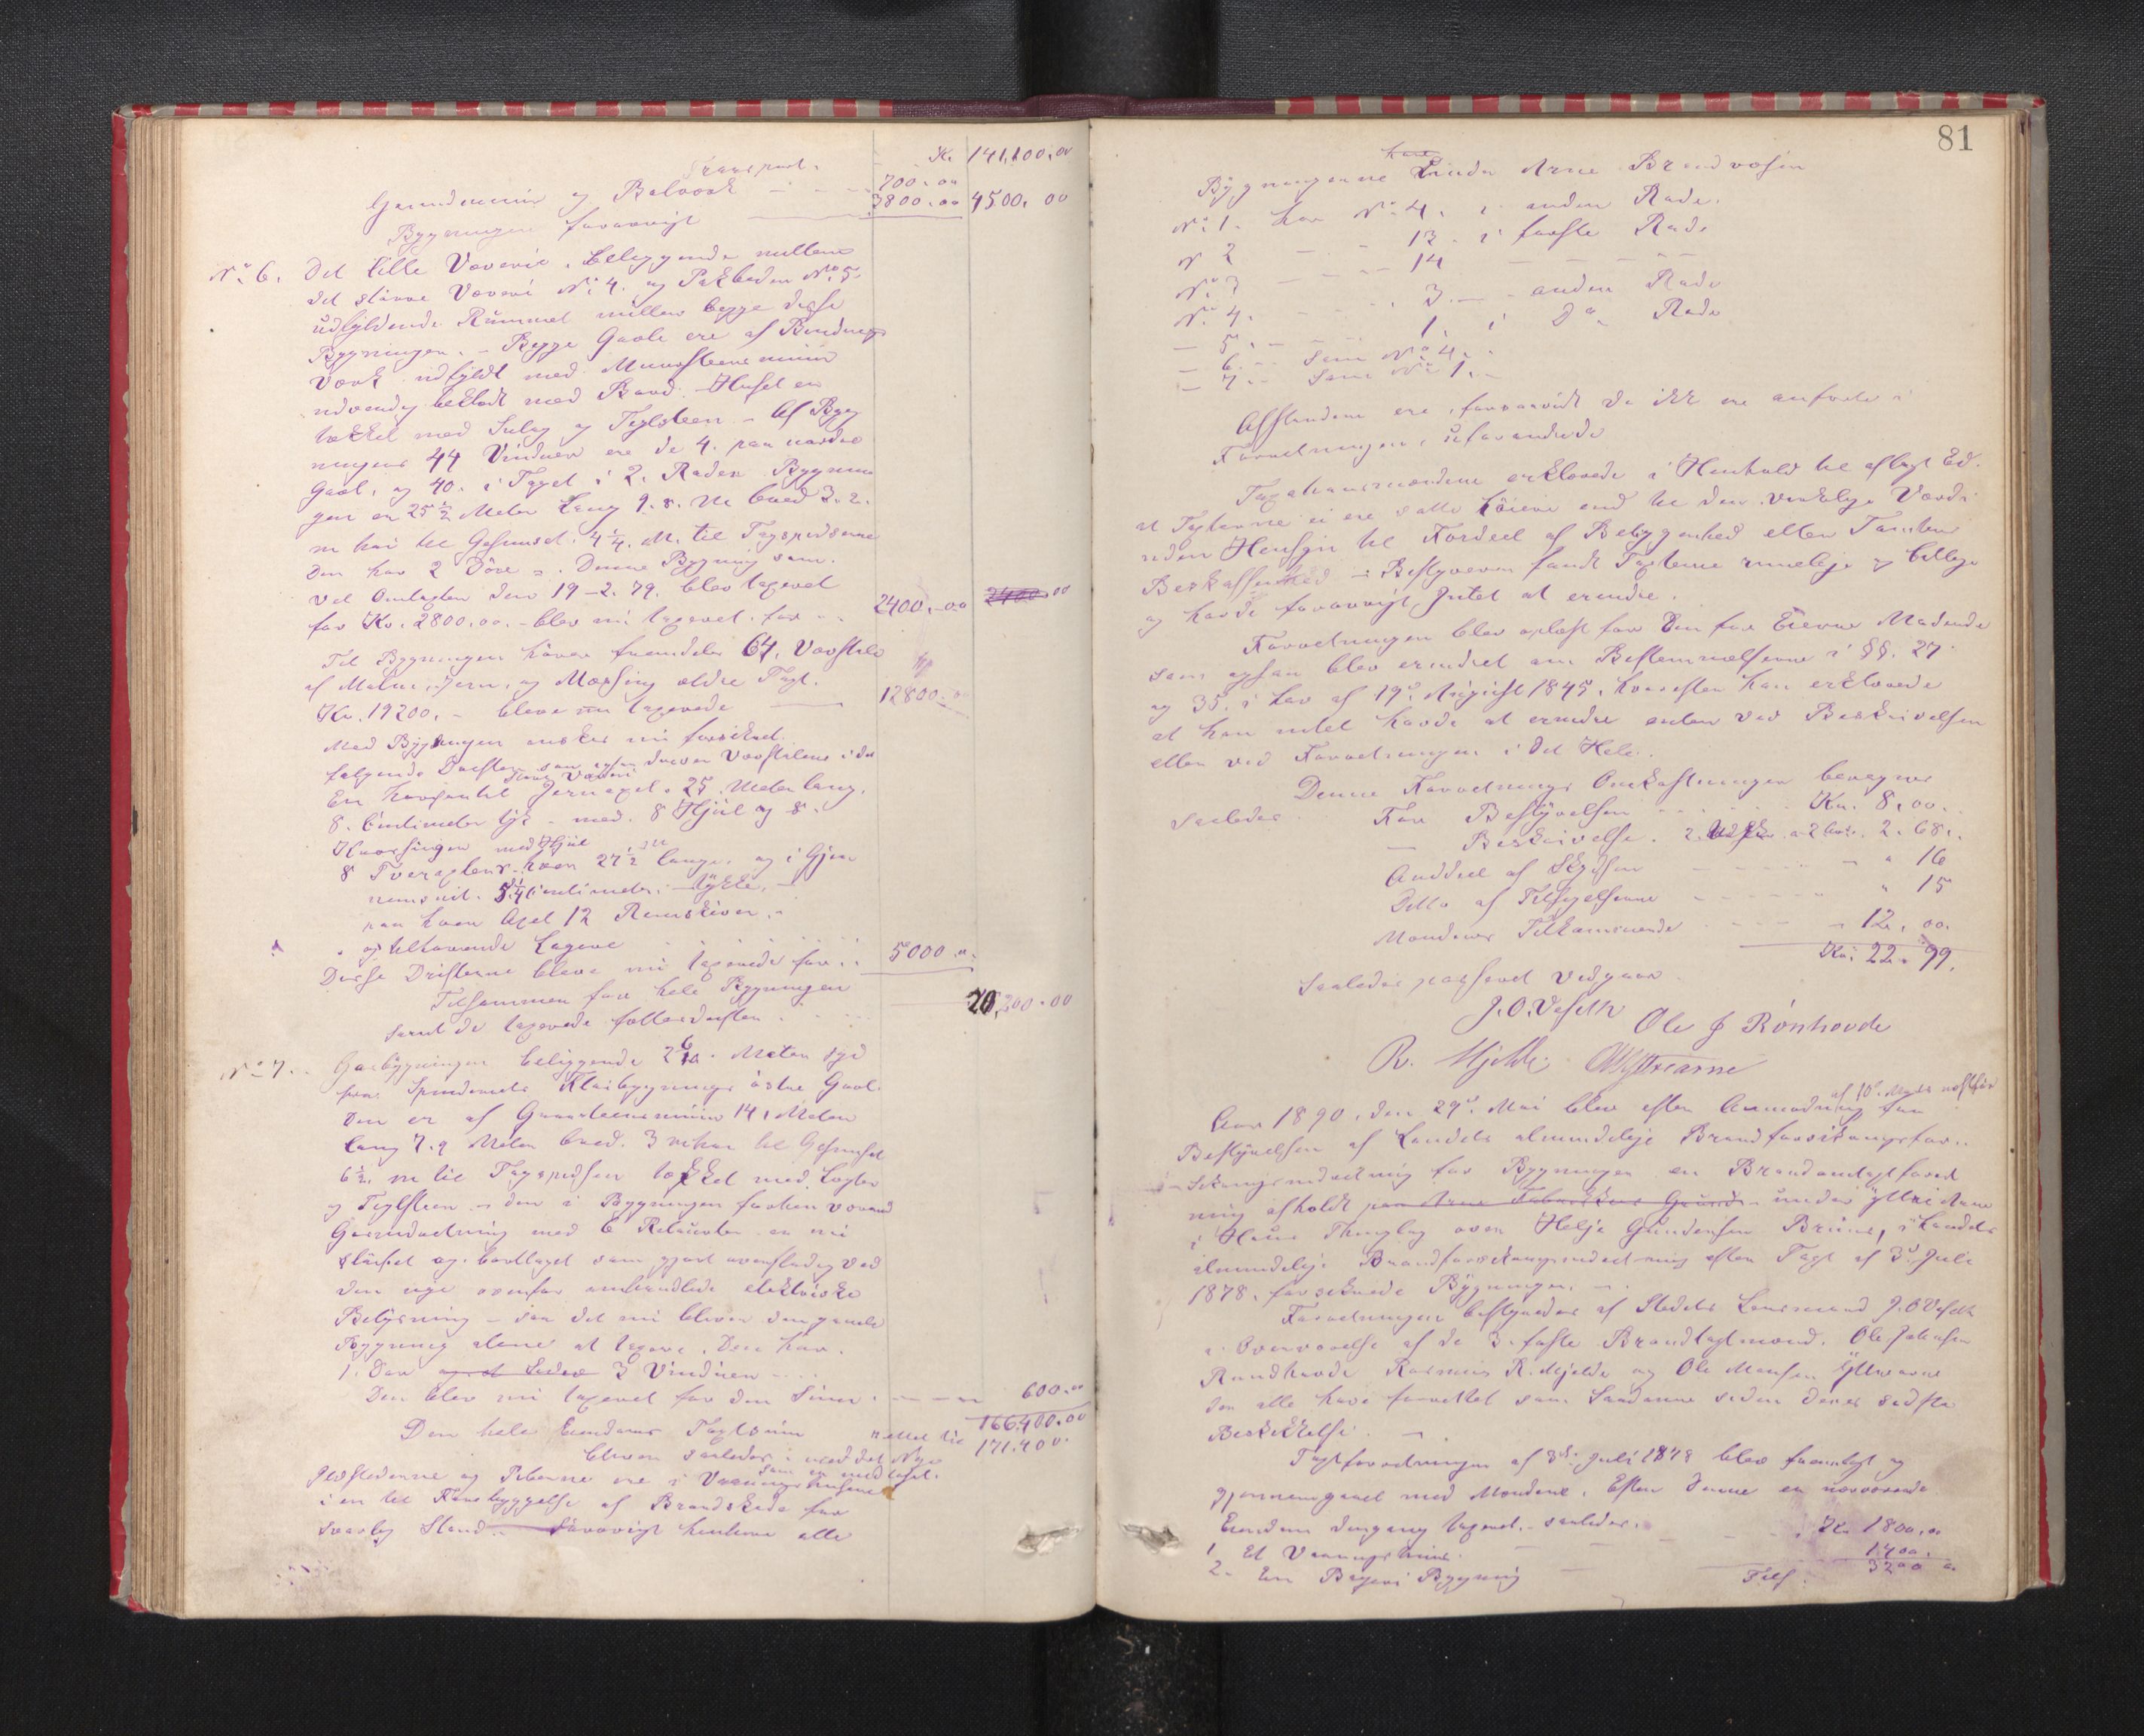 Transport. Kr. 141,100,00
Grundmuur og Bolværk — 700,00
Bygningen forøvrigt — 3800,00 4500,00
No 6. Det lille Væveri, beliggende mellem
det større Væveri No 4. og Pakboden No 5
udfyldende Rummet mellem begge disse
Bygninger. – Begge Gavle ere af Bindings
Værk udfyldt med Muursteensmuur
udvendig beklædt med Bord. Huset er
tækket med Sulag og Teglsteen – Af Byg
ningens 44 Vinduer ere de 4. paa nordre
Gavl, og 40. i Taget i 2. Rader. Bygnin
gen er 25 ½ Meter lang 9.8. M. bred 3.2.
m høi til Gesimset. 4 ¼. M. til Tagspidsene
Den har 2 Døre. Denne Bygning som
ved Omtaxten den 19–2. 79. blev taxeret
for Kr. 2800,00. – blev nu taxeret for 2400,00 2400,00
Til Bygningen hører fremdeles 64, Vævstole
af Malm, Jern, og Messing ældre Taxt.
Kr. 19200, – bleve nu taxerede — 12800,00
Med Bygningen ønskes nu forsikret
følgende Drifter som ogsaa driver Vævstolene i det
store Væveri
En horizontal Jernaxel. 25. Meter lang,
8. Centimeter tyk – med. 8 Hjul og 8.
med Hjul
8 Tveraxlens hver 27 ½ lange, og i Gjen
nemsnit. 5 ¼ Centimeter. tykke. –
paa hver Axel 12 Remskiver. –
og tilhørende Lagere
Disse Drifterne bleve nu taxerede for 5000 00
Tilsammen for hele Bygningen
samt de taxerede fællesdrifter 20,200,00
No 7. Gasbygningen beliggende 26 Meter syd
for Spinderiets Klæbygnings østre Gavl.
Den er af Graasteensmuur 14, Meter
lang 7.9 Meter bred. 3 m høi til Gesimset
6 ½. m til Tagspidsen tækket med Lægter
og Teglsteen – den i Bygningen forhen værend
Gasindretning med 6 Retourter er nu
sløifet og borttaget som gjort overflødig ved
den nye ovenfor omhandlede elektriske
Belysning – saa det nu bliver den gamle
Bygning alene at taxere. Den har.
1. Dør 3 Vinduer
Den blev nu taxeret for den Sum — 600,00
166,400,00
Den hele Eiendoms Taxtsum rettet til 171,400
bliver saaledes i med det Nye
som er medtaget.
Ildstederne og Piberne ere i Vaaningshusene
i en til Forebyggelse af Brandskade for
svarlig Stand. Forøvrigt henhøre alle

81
Bygningerne under Arne Brandvæsen
No 1. har No 4. i anden Rade.
N 2 — 13. i første Rade
No 3 — 14 — — —
No 4. — 3. — anden Rade
— 5. — 1. i Do Rade
— 6. – Som No 4.
— 7. – Som No 1. –
Afstandene ere, forsaavidt de ikke ere anførte i
Forretningen, uforandrede
Taxationsmændene erklærede i Henhold til aflagt Ed.
at Taxterne ei ere satte høiere end til den virkelige Værdi
uden Hensyn til Fordeel af Beliggenhed eller Tomtens
Beskaffenhed – Bestyreren fandt Taxterne rimelige og billige
og havde forøvrigt Intet at erindre.
Forretningen blev oplæst for den for Eierne Mødende
som ogsaa blev erindret om Bestemmelserne i §§. 27
og 35. i Lov af 19d. August 1845, hvorefter han erklærede
at han intet havde at erindre enten ved Beskrivelsen
eller ved Forretningen i det Hele.
Denne Forretnings Omkostninger beregnes
saaledes. For Bestyrelsen — Kr. 8,00.
— Beskrivelse. 2. 68.
Anddeel af Skydsen — " 16
Ditto af Tilsigelserne — " 15
Mændenes Tilkommende — 12,00.
Kr. 22. 99.
Saaledes passeret vedgaaer
J.O. Veseth Ole J Rønhovde
R. Mjelde. OMYttrearne
af 10d Marts næstfør
Aar 1890. den 29d. Mai blev efter Anmodning fra
Bestyrelsen af Landets almindelige Brandforsikringsfor
sikringsindretning for Bygninger en Brandomtaxtforret
ning afholdt paa Arne Fabrikkers Grund under Yttre Arne
i Haus Thinglag over Helje Gundersen Bruns, i Landets
almindelige Brandforsikringsindretning efter Taxt af 3d. Juli
1878. forsikrede Bygninger. –
Forretningen bestyredes af Stedets Lensmand J.O Veseth
i Overværelse af de 3. faste Brandtaxtmænd. Ole Johansen
Rundhovde Rasmus R. Mjelde og Ole Monsen Yttrearne
der alle have forrettet som Saadanne siden deres sidste
Beskikkelse. –
Taxtforretningen af 3d. Juli 1878 blev fremlagt og
gjennemgaaet med Mændene. Efter denne er nærværende
Eiendom dengang taxeret saaledes.
1. Et Vaaningshuus. — Kr. 1800,00
2. En Bageri Bygning — 1400,
Tils. 3200 00